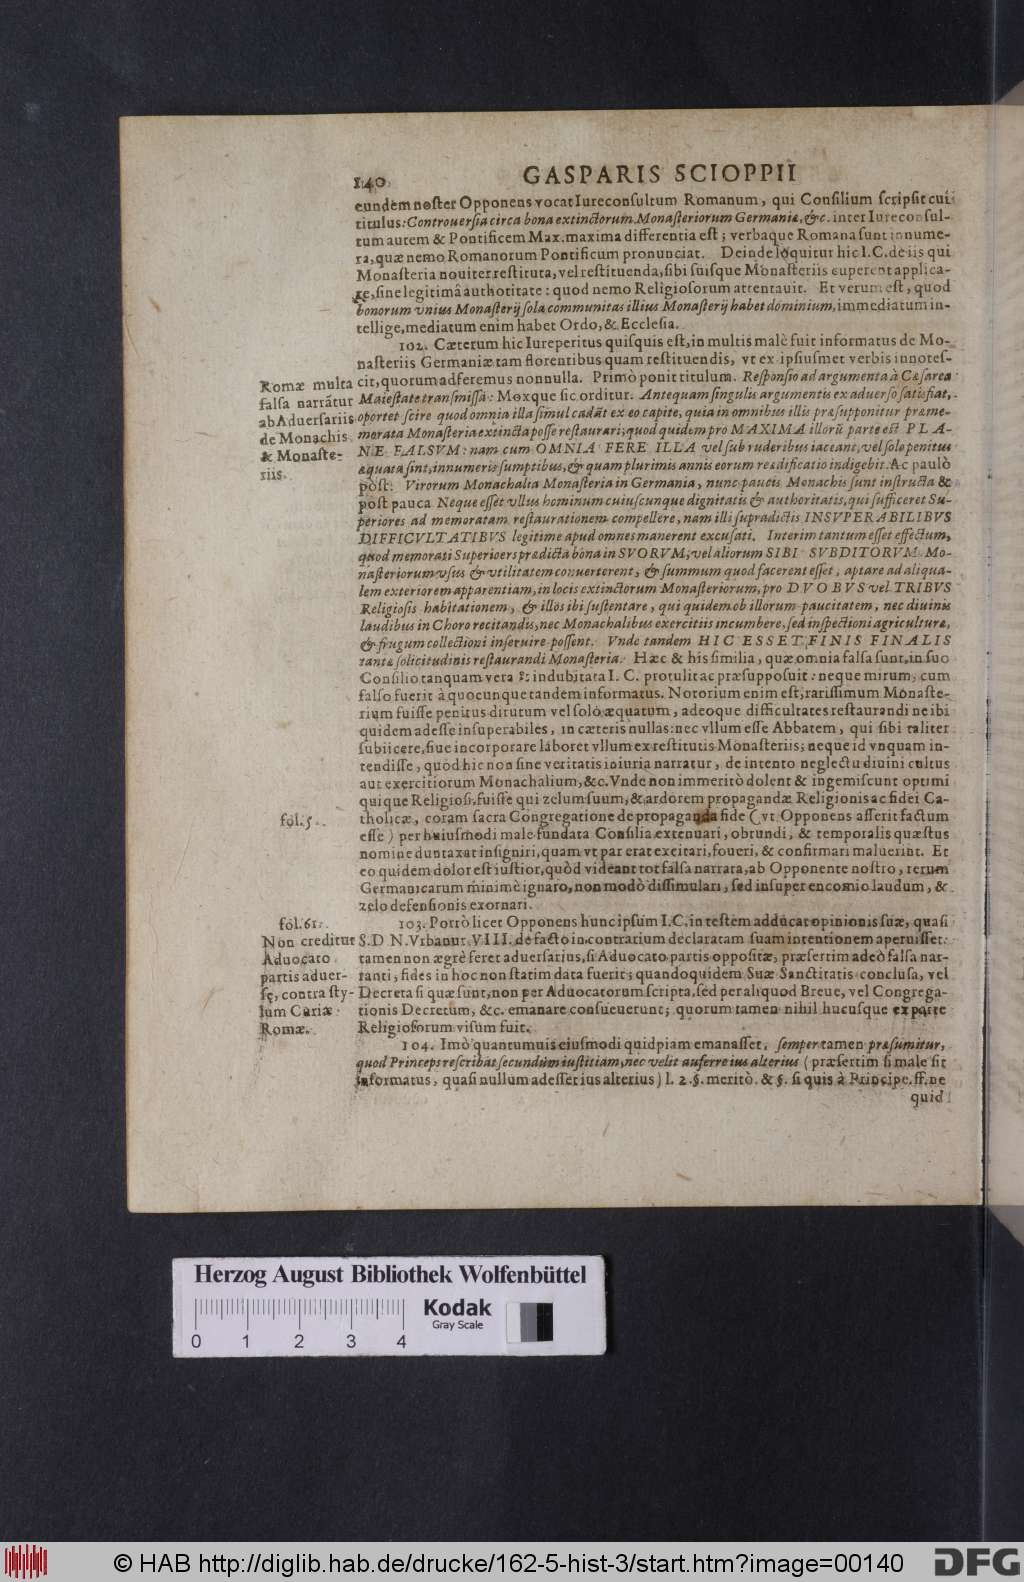 140 GASPARIS SCIOPPII
eundem noster Opponens vocat Iureconsultum Romanum, qui Consilium scripsit cui
titulus: Controuersia circa bona extinctorum Monasteriorum Germaniæ, &c. inter Iureconsul-
tum autem & Pontificem Max. maxima differentia est; verbaque Romana sunt innume-
ra, quæ nemo Romanorum Pontificum pronunciat. Deinde loquitur hic I.C. de iis qui
Monasteria nouiter restituta, vel restituenda, sibi suisque Monasteriis cuperent applica-
re, sine legitimâ authoritate: quod nemo Religiosorum attentauit. Et verum est, quod
bonorum vnius Monasterij sola communitas illius Monasterij habet dominium, immediatum in-
tellige, mediatum enim habet Ordo, & Ecclesia.
102. Cæterum hic Iureperitus quisquis est, in multis malè fuit informatus de Mo-
nasteriis Germaniæ tam florentibus quam restituendis, vt ex ipsiusmet verbis innotes-
cit, quorum adferemus nonnulla. Primò ponit titulum. Responsio ad argumenta à Cæsarea
Maiestate transmissa: Moxque sic orditur. Antequam singulis argumentis ex aduerso satisfiat,
oportet scire quod omnia illa simul cadāt ex eo capite, quia in omnibus illis præsupponitur præme-
morata Monasteria extincta posse restaurari; quod quidem pro MAXIMA illorū parte est PLA-
NE FALSVM: nam cum OMNIA FERE ILLA vel sub ruderibus iaceant, vel solo penitus
æquata sint, innumeris sumptibus, & quamplurimis annis eorum reædificatio indigebit. Ac paulò
pòst: Virorum Monachalia Monasteria in Germania, nunc paucis Monachis sunt instructa &
post pauca Neque esset vllus hominum cuiuscunque dignitatis & authoritatis, qui sufficeret Su-
periores ad memoratam restaurationem compellere, nam illi supradictis INSVPERABILIBVS
DIFFICVLTATIBVS legitime apud omnes manerent excusati. Interim tantum esset effectum,
quod memorati Superiores prædicta bona in SVORVM, vel aliorum SIBI SVBDITORVM Mo-
nasteriorum vsus & vtilitatem conuerterent, & summum quod facerent esset, aptare ad aliqua-
lem exteriorem apparentiam, in locis extinctorum Monasteriorum, pro DVOBVS vel TRIBVS
Religiosis habitationem, & illos ibi sustentare, qui quidem ob illorum paucitatem, nec diuinis
laudibus in Choro recitandis, nec Monachalibus exercitiis incumbere, sed inspectioni agriculturæ,
& frugum collectioni inseruire possent. Vnde tandem HIC ESSET FINIS FINALIS
tantæ solicitudinis restaurandi Monasteria. Hæc & his similia, quæ omnia falsa sunt, in suo
Consilio tanquam vera & indubitata I. C. protulit ac præsupposuit: neque mirum, cum
falso fuerit à quocunque tandem informatus. Notorium enim est, rarissimum Monaste-
rium fuisse penitus dirutum vel solo æquatum, adeoque difficultates restaurandi ne ibi
quidem adesse insuperabiles, in cæteris nullas: nec vllum esse Abbatem, qui sibi taliter
subiicere, siue incorporare laboret vllum ex restitutis Monasteriis; neque id vnquam in-
tendisse, quod hic non sine veritatis iniuria narratur, de intento neglectu diuini cultus
aut exercitiorum Monachalium, &c. Vnde non immeritò dolent & ingemiscunt optimi
quique Religiosi, fuisse qui zelum suum, & ardorem propagandæ Religionis ac fidei Ca-
tholicæ, coram sacra Congregatione de propaganda fide (vt Opponens asserit factum
esse) per huiusmodi male fundata Consilia extenuari, obtundi, & temporalis quæstus
nomine duntaxat insigniri, quam vt par erat excitari, foueri, & confirmari maluerint. Et
eo quidem dolor est iustior, quòd videant tot falsa narrata, ab Opponente nostro, rerum
Germanicarum minimè ignaro, non modò dissimulari, sed insuper encomio laudum, &
zelo defensionis exornari.
103. Porrò licet Opponens hunc ipsum I.C. in testem adducat opinionis suæ, quasi
S.D.N. Vrbanur VIII. de facto in contrarium declaratam suam intentionem aperuisset:
tamen non ægrè feret aduersarius, si Aduocato partis oppositæ, præsertim adeò falsa nar-
ranti, fides in hoc non statim data fuerit; quandoquidem Suæ Sanctitatis conclusa, vel
Decreta si quæ sunt, non per Aduocatorum scripta, sed per aliquod Breue, vel Congrega-
tionis Decretum, &c. emanare consueuerunt; quorum tamen nihil hucusque ex parte
Religiosorum visum fuit.
104. Imò quantumuis eiusmodi quidpiam emanasset, semper tamen præsumitur,
quod Princeps rescribat secundùm iustitiam, nec velit auferre ius alterius (præsertim si male sit
informatus, quasi nullum adesset ius alterius) l. 2. §. meritò. & §. si quis à Principe. ff. ne
quid
Romæ multa
falsa narrātur
ab Aduersariis
de Monachis
& Monaste-
riis.
fol. 5.
fol. 61.
Non creditur
Aduocato
partis aduer-
sę, contra sty-
lum Curiæ
Romæ.
Herzog August Bibliothek Wolfenbüttel
Kodak
Gray Scale
0 1 2 3 4
© HAB http://diglib.hab.de/drucke/162-5-hist-3/start.htm?image=00140
DFG